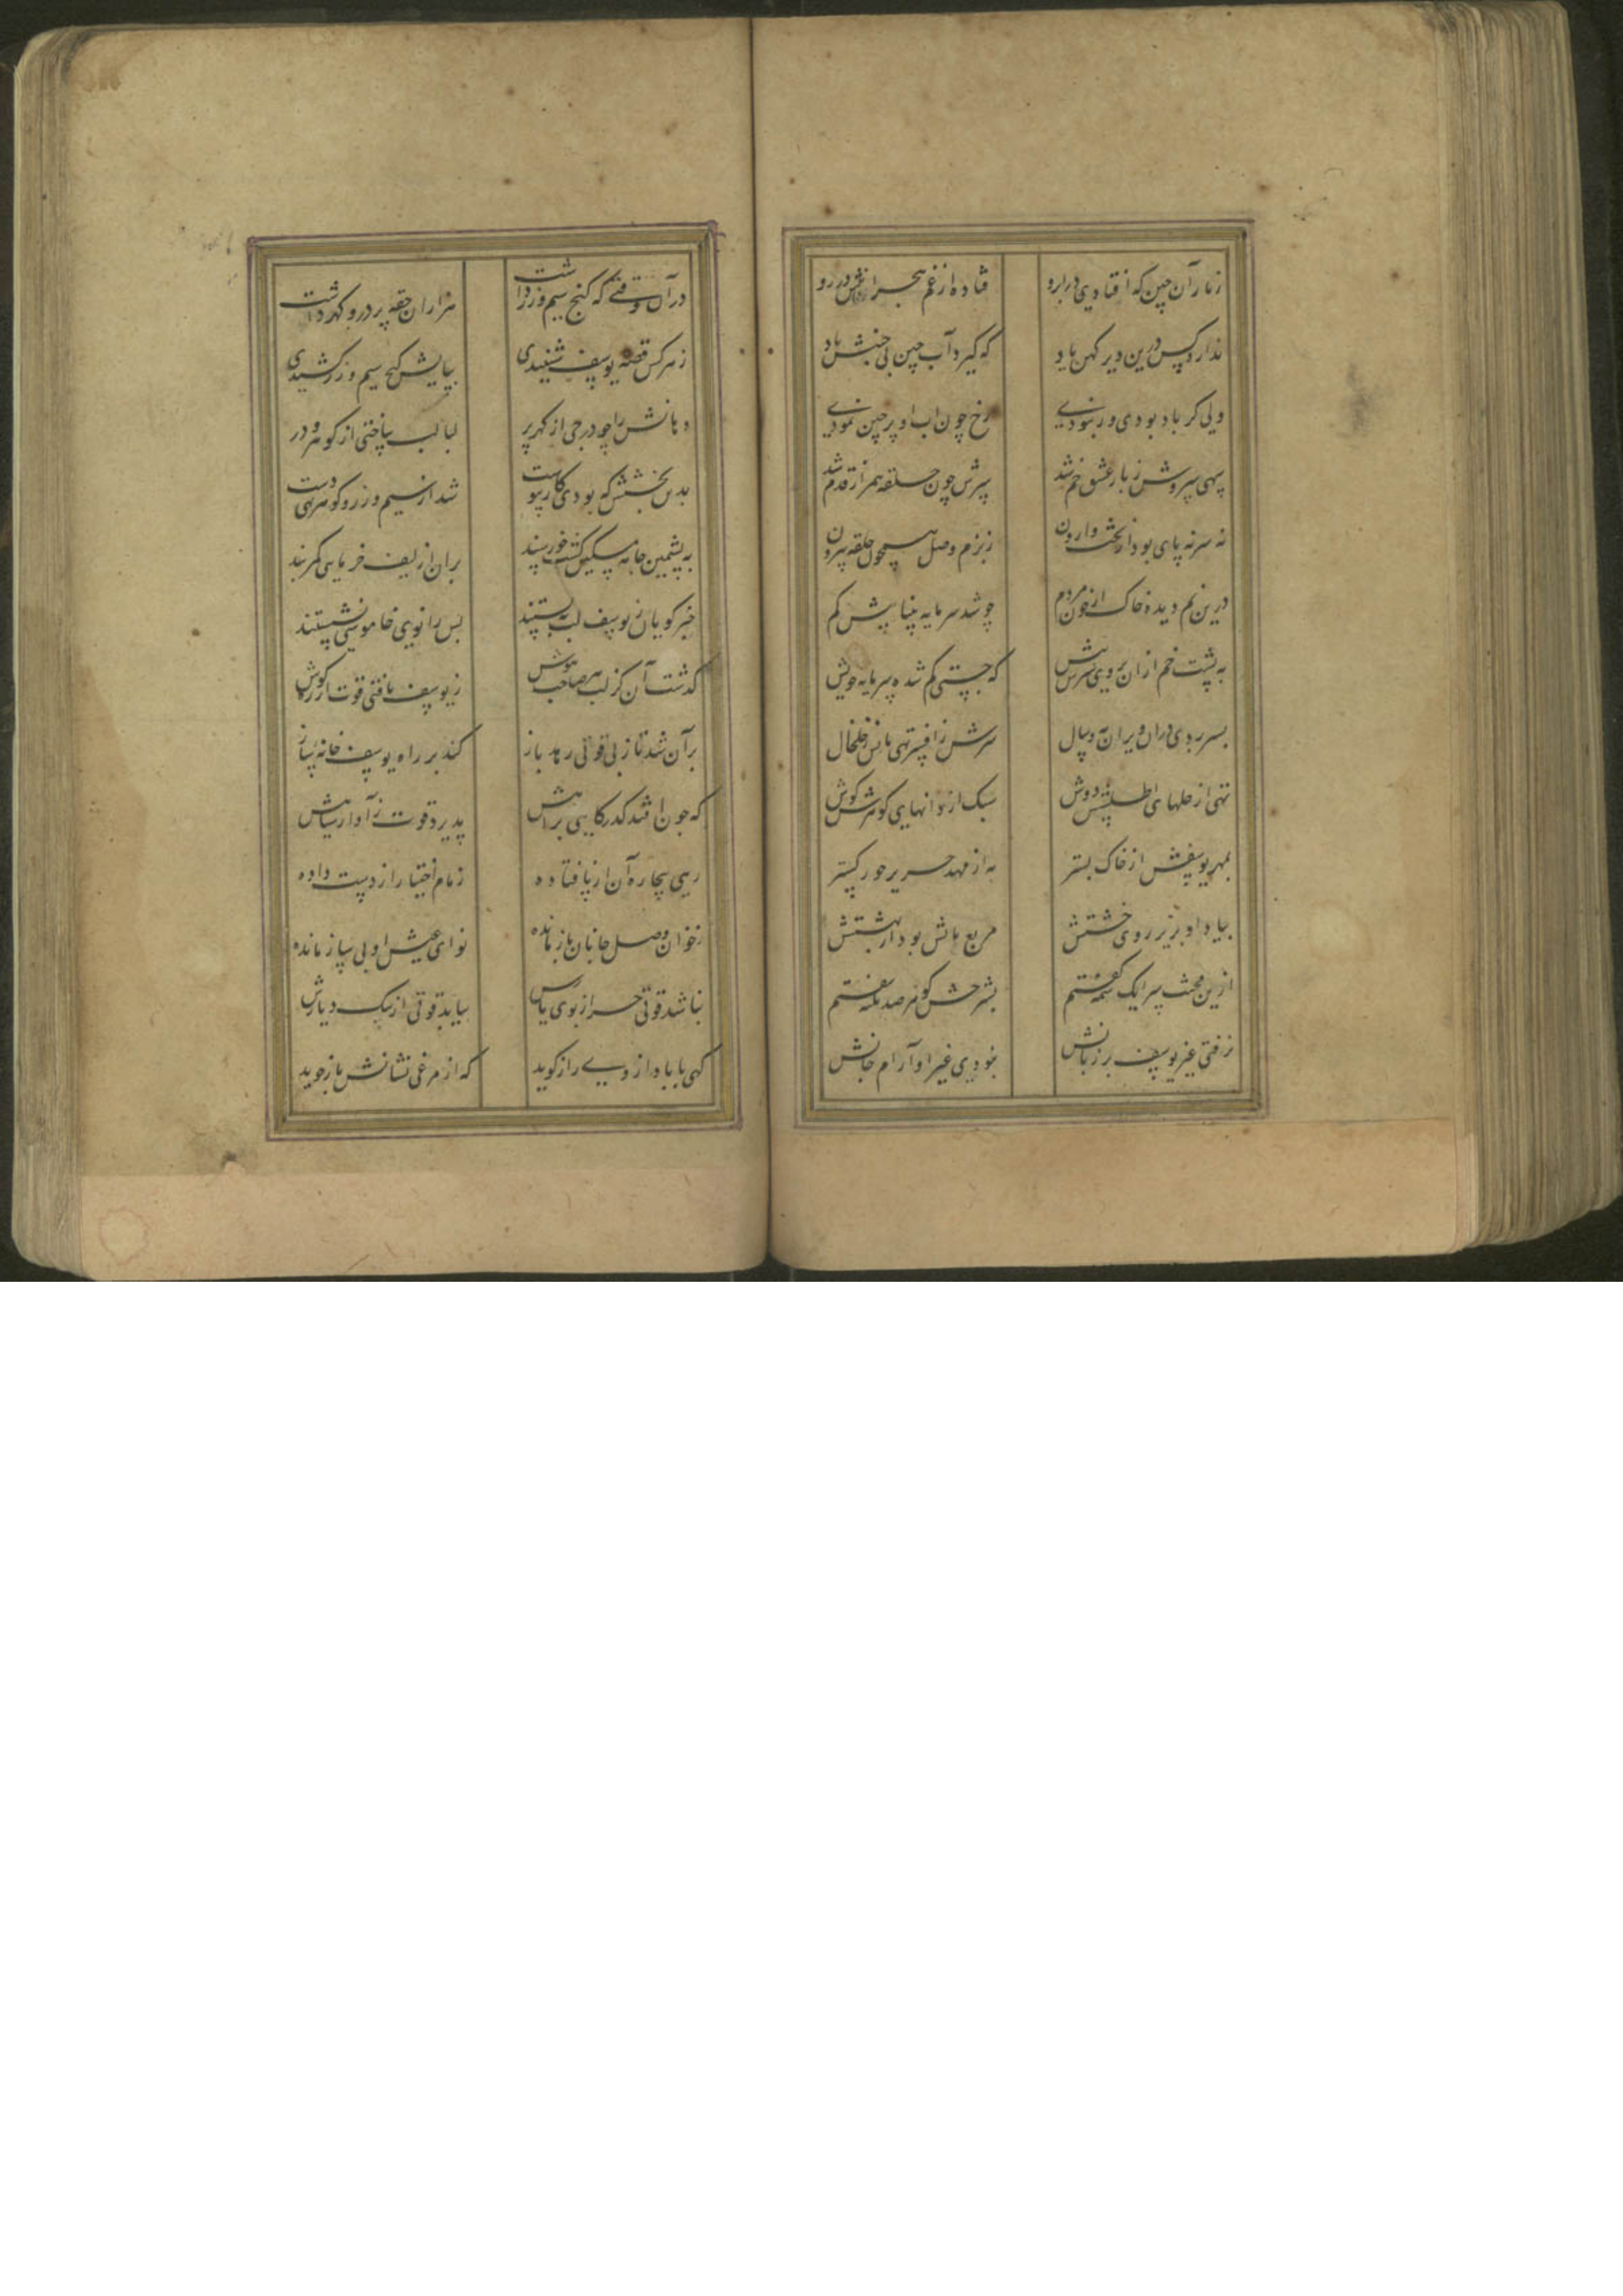 زناز آن چین که افتادی در ابرو فتاده از غم هجرانش در رو
ندارد کس درین دیر کهن یاد که گیرد آب چین بی جنبش باد
ولی گر باد بودی ور نبودی رخ چون اب او پر چین نمودی
سهی سروش ز بار عشق خم شد سرش چون حلقه همراز قدم شد
نه سر نه پای بود از بخت وارون ز بزم وصل همچون حلقه بیرون
درین نم دیده خاک از خون مردم چو شد سرمایه بیناییش کم
به پشت خم از ان بودی سرش پیش که جستی کم شده سرمایه خویش
بسر بردی در ان ویرانه و سال سرش ز افسر تهی پایش ز خلخال
تهی از حلهای اطلسش دوش سبک از دانهای گوهرش گوش
بمهر یوسفش از خاک بستر به از مهد حریر حور گستر
بیاد او بزیر روی خشتش مربع بالش بود از بهشتش
ازین محنت سرا یک شمه گفتم بشرحش گوهر صد نکته سفتم
نرفتی غیر یوسف بر زبانش نبودی غیر او آرام جانش
در آن وقتی که گنج سیم و زر داشت هزاران حقه پر در و گهر داشت
ز هر کس قصه یوسف شنیدی بپایش گنج سیم و زر کشیدی
دهانش را چو درجی از گهر پر لبالب ساختی از گوهر و در
بدین بخشش که بودی کار پیوست شد از سیم و زر و گوهر تهی دست
به پشمین جامه مسکین گشت خورسند بران از لیف خرمایی کمربند
خبر گویان ز یوسف لب ببستند پس زانوی خاموشی نشستند
گذشت آن کز لب هر صاحب هوش ز یوسف یافتی قوت از ره گوش
بر آن شد تا ز بی قوتی رهد باز کند بر راه یوسف خانه ساز
که چون افتد گذر گاهی براهش پذیرد قوت ز آواز سپاهش
زهی بیچاره آن از پا فتاده زمام اختیار از دست داده
ز خوان وصل جانان باز مانده نوای عیش او بی ساز مانده
نباشد قوتی جز از بوی یارش بیابد قوتی از پیک دیارش
گهی با باد از وی راز گوید که از مرغی نشانش باز جوید